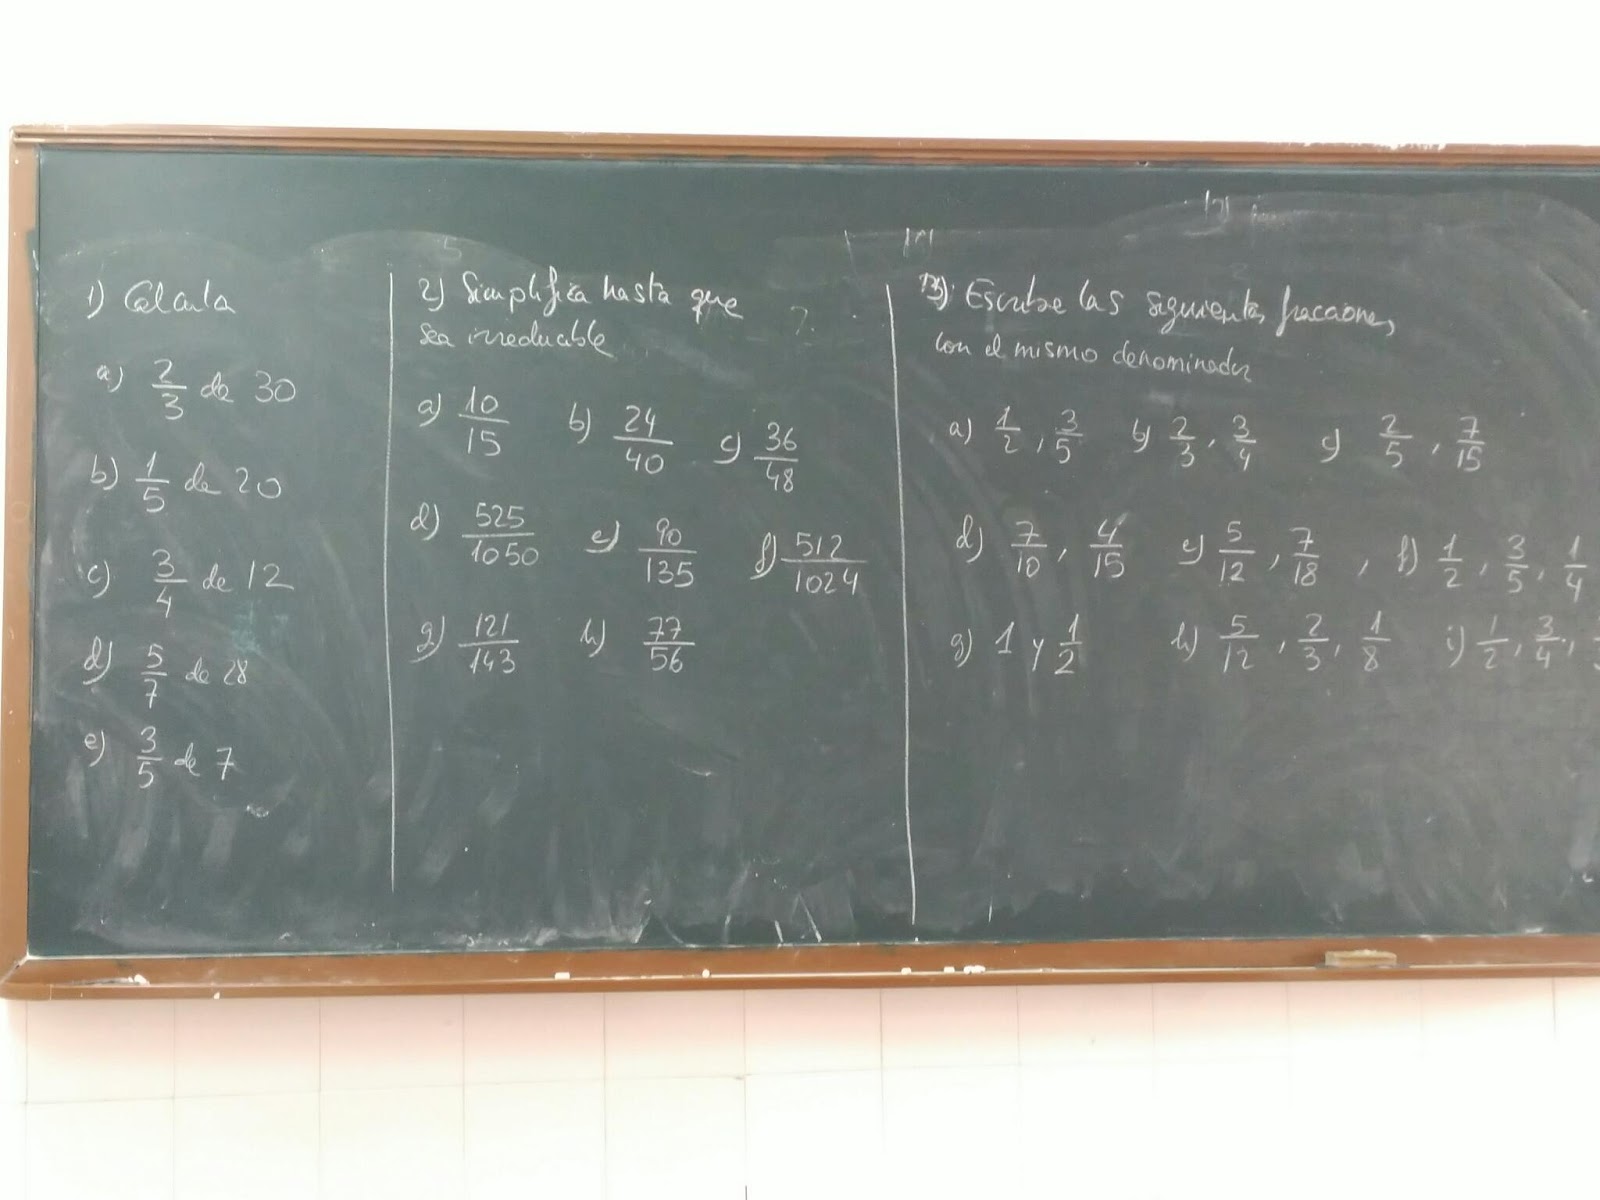 1) Calcula
a) 2/3 de 30
b) 1/5 de 20
c) 3/4 de 12
d) 5/7 de 28
e) 3/5 de 7
2) Simplifica hasta que
sea irreducible
a) 10/15 b) 24/40 c) 36/48
d) 525/1050 e) 90/135 f) 512/1024
g) 121/143 h) 77/56
3) Escribe las siguientes fracciones
con el mismo denominador
a) 1/2, 3/5 b) 2/3, 3/4 c) 2/5, 7/15
d) 7/10, 4/15 e) 5/12, 7/18, f) 1/2, 3/5, 1/4
g) 1 y 1/2 h) 5/12, 2/3, 1/8 i) 1/2, 3/4,